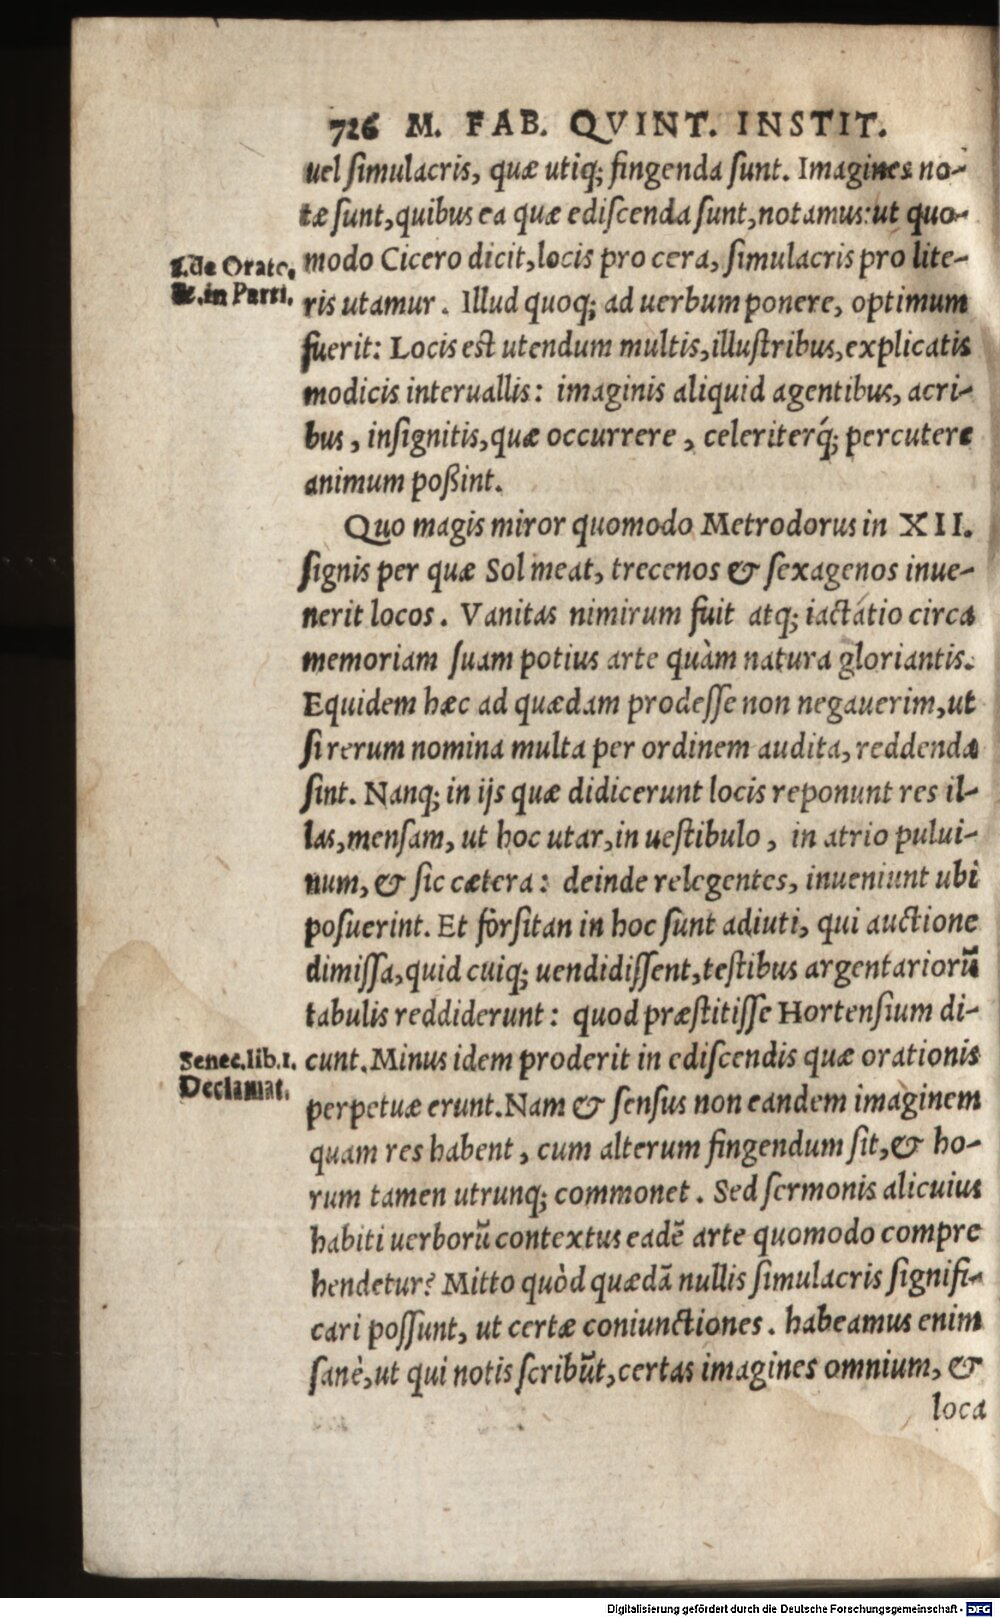 726 M. FAB. QVINT. INSTIT.
uel simulacris, quæ utiq; fingenda sunt. Imagines no-
tæ sunt, quibus ea quæ ediscenda sunt, notamus: ut quo-
modo Cicero dicit, locis pro cera, simulacris pro lite-
ris utamur. Illud quoq; ad uerbum ponere, optimum
fuerit: Locis est utendum multis, illustribus, explicatis
modicis interuallis: imaginis aliquid agentibus, acri-
bus, insignitis, quæ occurrere, celeriterq́; percutere
animum poßint.
Quo magis miror quomodo Metrodorus in XII.
signis per quæ Sol meat, trecenos & sexagenos inue-
nerit locos. Vanitas nimirum fuit atq; iactátio circa
memoriam suam potius arte quàm natura gloriantis.
Equidem hæc ad quædam prodesse non negauerim, ut
si rerum nomina multa per ordinem audita, reddenda
sint. Nanq; in ijs quæ didicerunt locis reponunt res il-
las, mensam, ut hoc utar, in uestibulo, in atrio pului-
num, & sic cætera: deinde relegentes, inueniunt ubi
posuerint. Et forsitan in hoc sunt adiuti, qui auctione
dimissa, quid cuiq; uendidissent, testibus argentariorũ
tabulis reddiderunt: quod præstitisse Hortensium di-
cunt. Minus idem proderit in ediscendis quæ orationis
perpetuæ erunt. Nam & sensus non eandem imaginem
quam res habent, cum alterum fingendum sit, & ho-
rum tamen utrunq; commonet. Sed sermonis alicuius
habiti uerborũ contextus eadẽ arte quomodo compre
hendetur? Mitto quòd quædã nullis simulacris signifi-
cari possunt, ut certæ coniunctiones. habeamus enim
sanè, ut qui notis scribũt, certas imagines omnium, &
loca
de Orato.
&.in Parti.
Senec.lib.1.
Declamat.
Digitalisierung gefördert durch die Deutsche Forschungsgemeinschaft - DFG